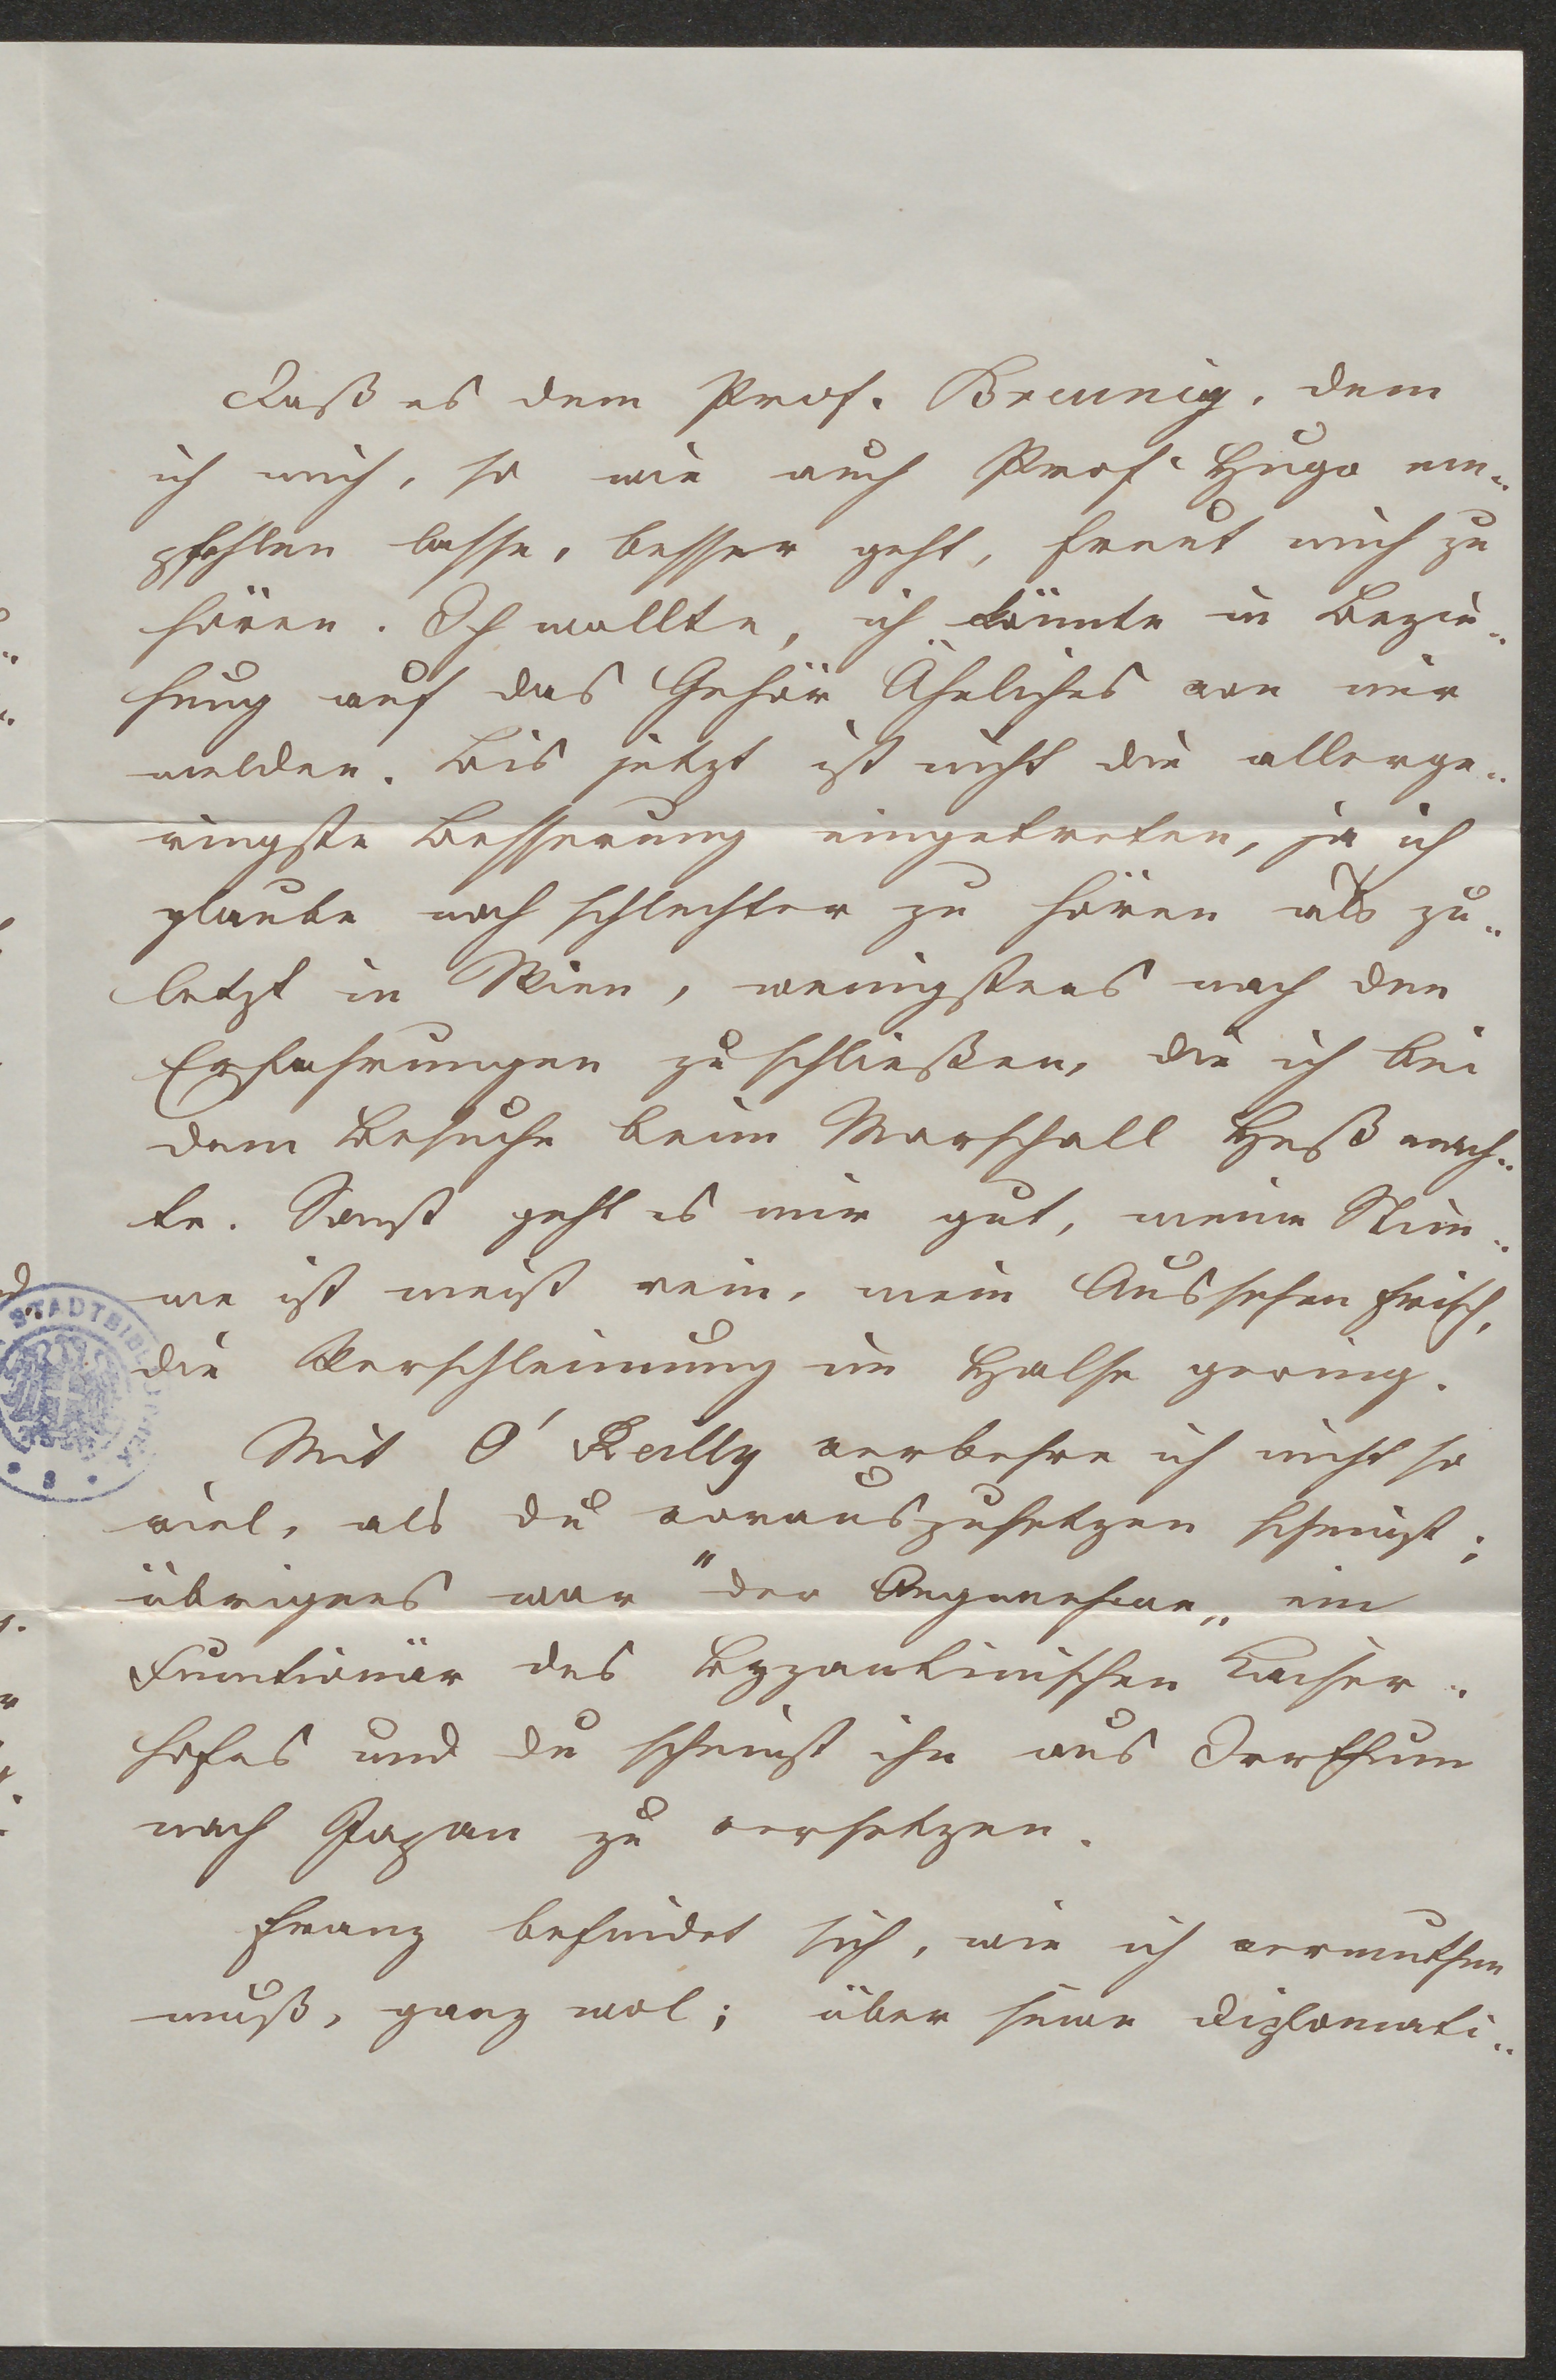 Daß es dem Prof. Breunig, dem
ich mich, so wie auch Prof. Hugo em-
pfehlen lasse, besser geht, freut mich zu
hören. Ich wollte, ich könnte in Bezie-
hung auf das Gehör Ähnliches von mir
melden. Bis jetzt ist nicht die allerge-
ringste Besserung eingetreten, ja ich
glaube noch schlechter zu hören als zu-
letzt in Wien, wenigstens nach den
Erfahrungen zu schließen, die ich bei
dem Besuche beim Marschall Heß mach-
te. Sonst geht es mir gut, meine Stim-
me ist meist rein, mein Aussehen frisch,
die Verschleimung im Halse gering.
Mit O'Reilly verkehre ich nicht so
viel, als du vorauszusetzen scheinst;
übrigens war "der Angenehme" ein
Functionär des Byzantinischen Kaiser-
hofes und du scheinst ihn aus Irrthum
nach Japan zu versetzen.
Franz befindet sich, wie ich vermuthen
muß, ganz wol; über seine diplomati-
STADTBIBLIOTHEK